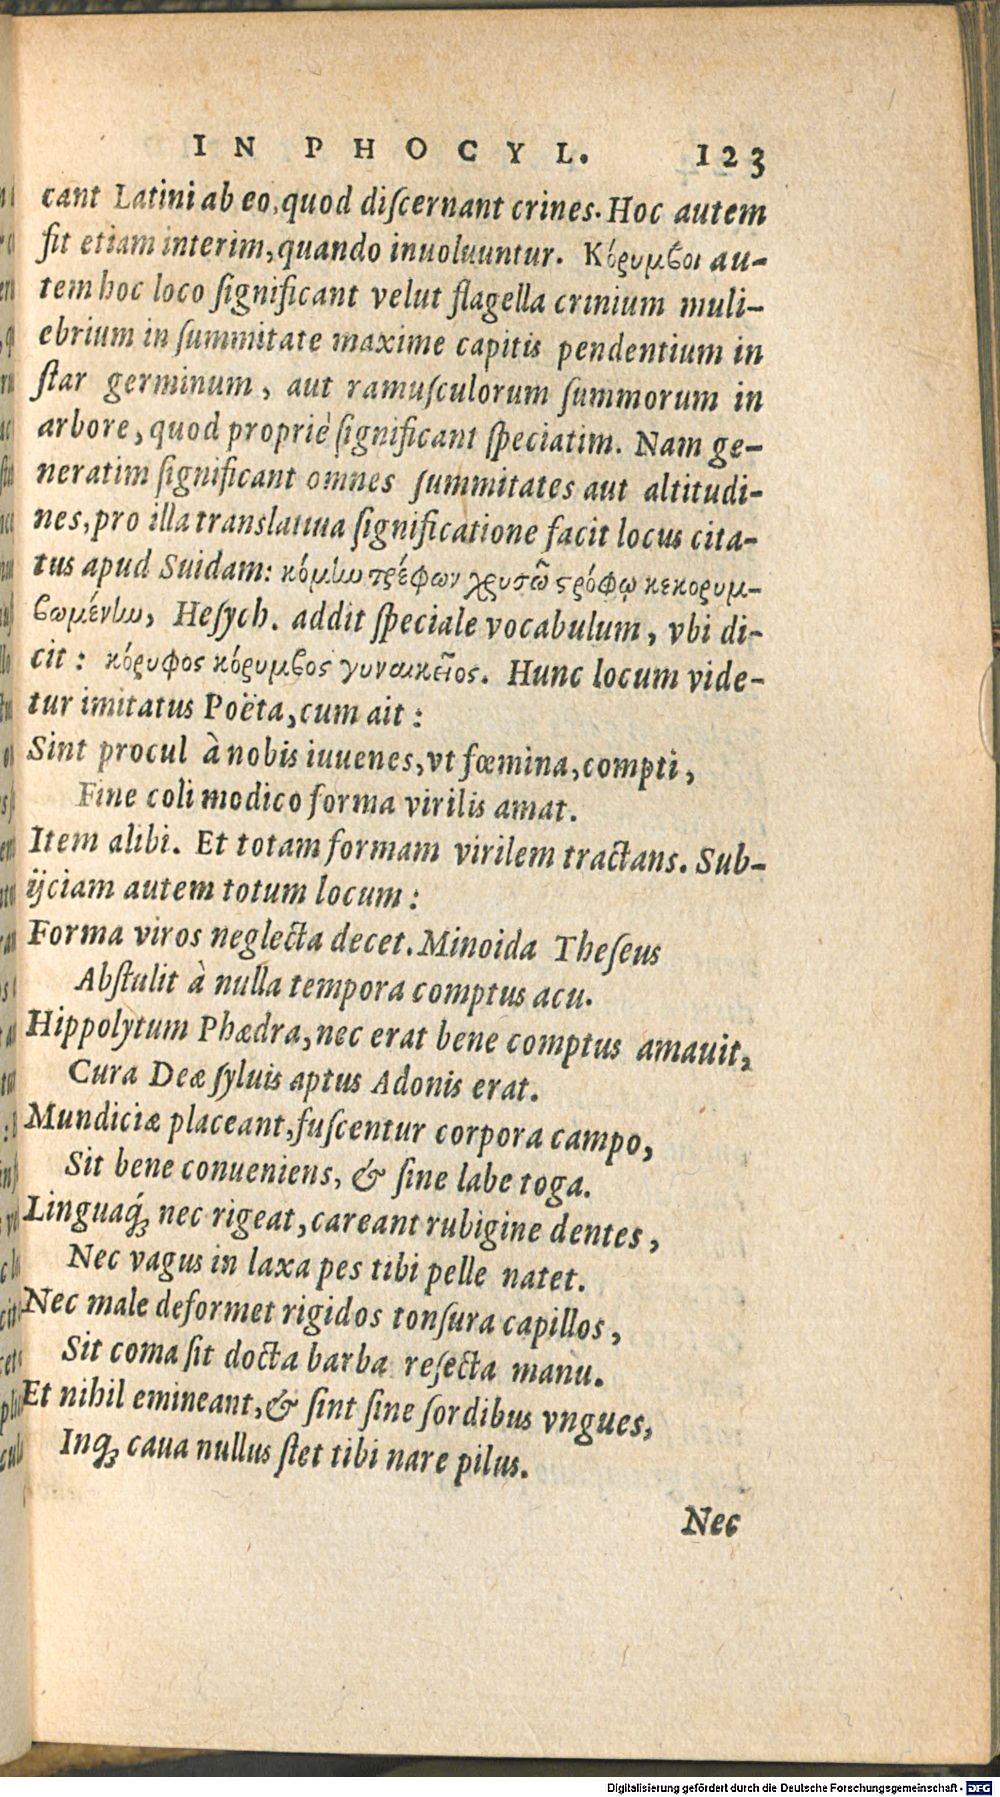 IN PHOCYL. 123
cant Latini ab eo, quod diſcernant crines. Hoc autem
fit etiam interim, quando inuoluuntur. Κόρυμβοι au-
tem hoc loco ſignificant velut flagella crinium muli-
ebrium in ſummitate maxime capitis pendentium in
ſtar germinum, aut ramuſculorum ſummorum in
arbore, quod propriè ſignificant ſpeciatim. Nam ge-
neratim ſignificant omnes ſummitates aut altitudi-
nes, pro illa translatiua ſignificatione facit locus cita-
tus apud Suidam: κόμην τρέφων χρυσῶ στρόφῳ κεκορυμ-
βωμένην, Heſych. addit ſpeciale vocabulum, vbi di-
cit: κόρυφος κόρυμβος γυναικεῖος. Hunc locum vide-
tur imitatus Poëta, cum ait:
Sint procul à nobis iuuenes, vt fœmina, compti,
Fine coli modico forma virilis amat.
Item alibi. Et totam formam virilem tractans. Sub-
ijciam autem totum locum:
Forma viros neglecta decet. Minoida Theſeus
Abſtulit à nulla tempora comptus acu.
Hippolytum Phædra, nec erat bene comptus amauit,
Cura Deæ ſyluis aptus Adonis erat.
Mundiciæ placeant, fuſcentur corpora campo,
Sit bene conueniens, & ſine labe toga.
Linguaq́; nec rigeat, careant rubigine dentes,
Nec vagus in laxa pes tibi pelle natet.
Nec male deformet rigidos tonſura capillos,
Sit coma ſit docta barba reſecta manu.
Et nihil emineant, & ſint ſine ſordibus vngues,
Inq; caua nullus ſtet tibi nare pilus.
Nec
Digitalisierung gefördert durch die Deutsche Forschungsgemeinschaft - DFG